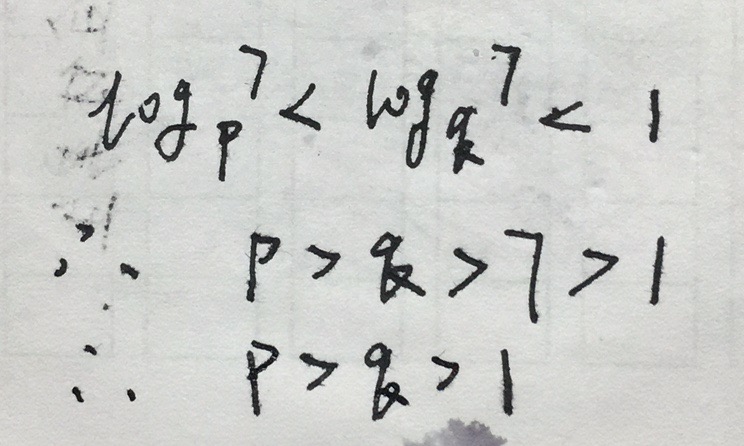 log_p^7 < log_q^7 < 1
∴ p > q > 7 > 1
∴ p > q > 1